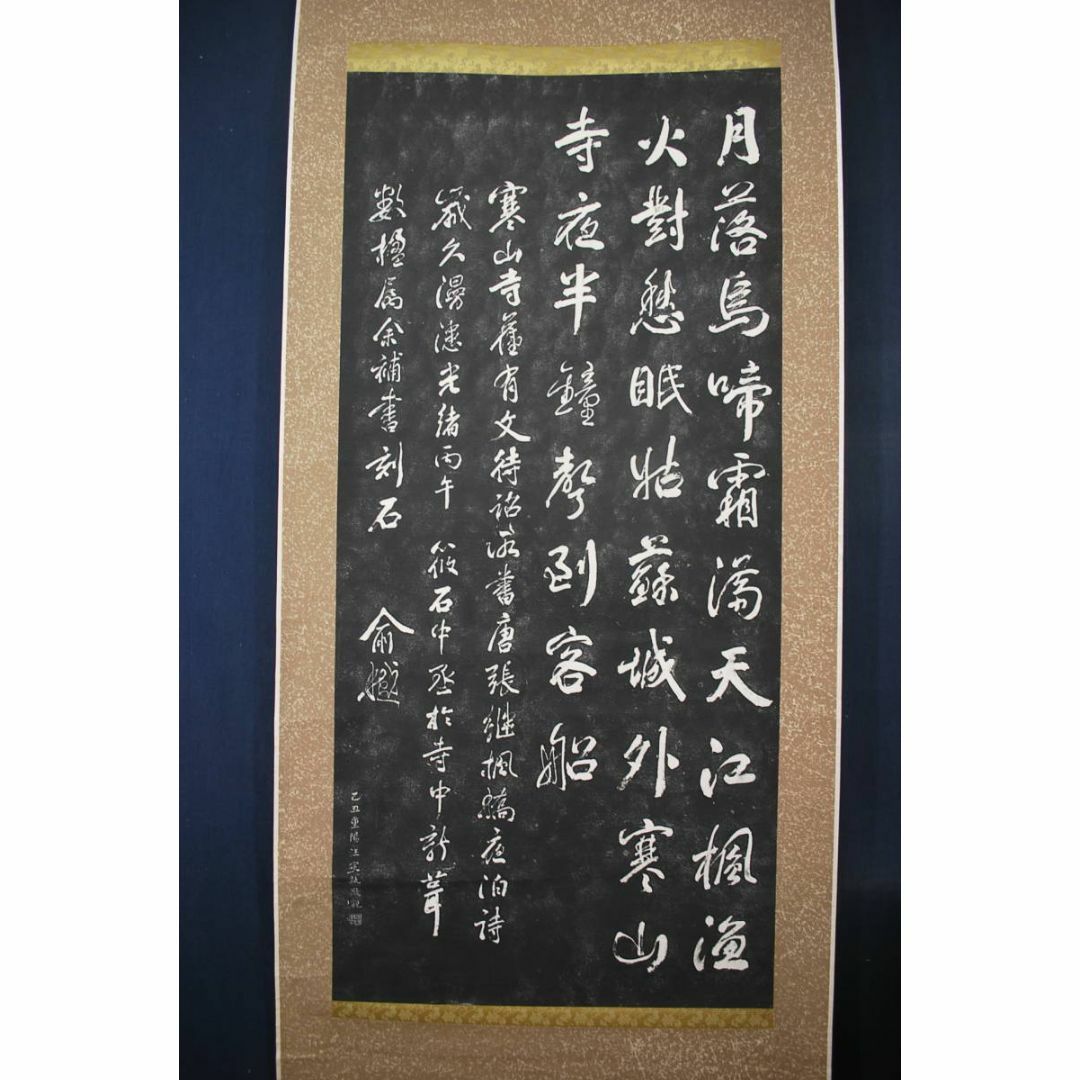 月落烏啼霜満天江楓漁
火對愁眠姑蘇城外寒山
寺夜半鐘聲到客船
寒山寺舊有文待詔所書唐張繼楓橋夜泊詩
歲久漫漶光緒丙午 筱石中丞於寺中新葺
數楹屬余補書刻石 俞樾
乙丑重陽